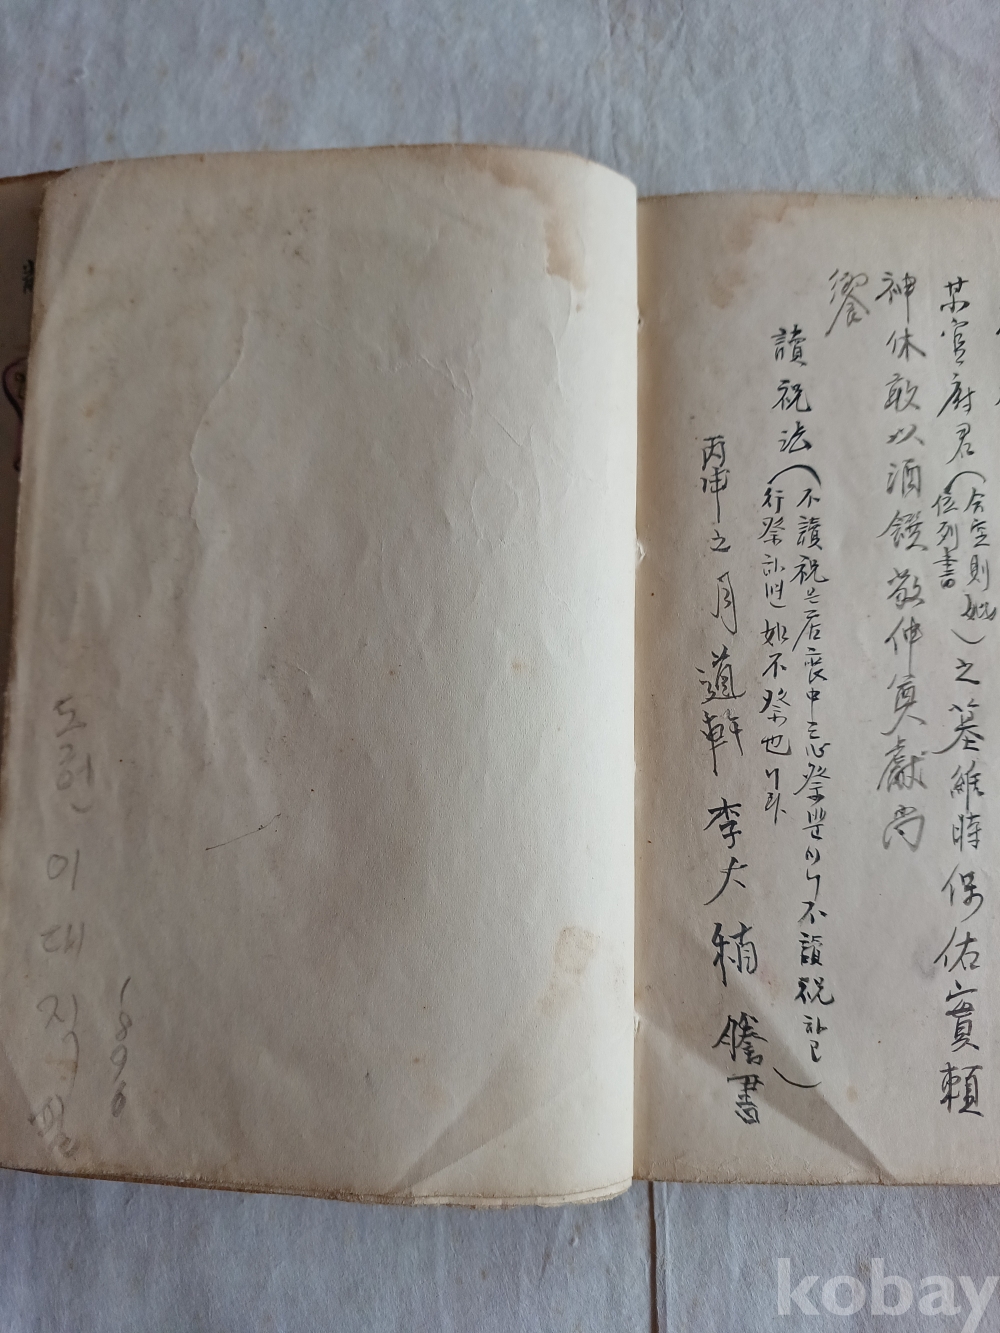 某官府君(合窆則妣
位列書)之墓維時保佑實賴
神休敢以酒饌敬伸奠獻尚
饗
讀祝法(不讀祝은居喪中忌祭뿐이니不讀祝하고
行祭하면如不祭也니라)
丙申之月道軒李大稙謄書
도헌 이대직 필
1896
kobay